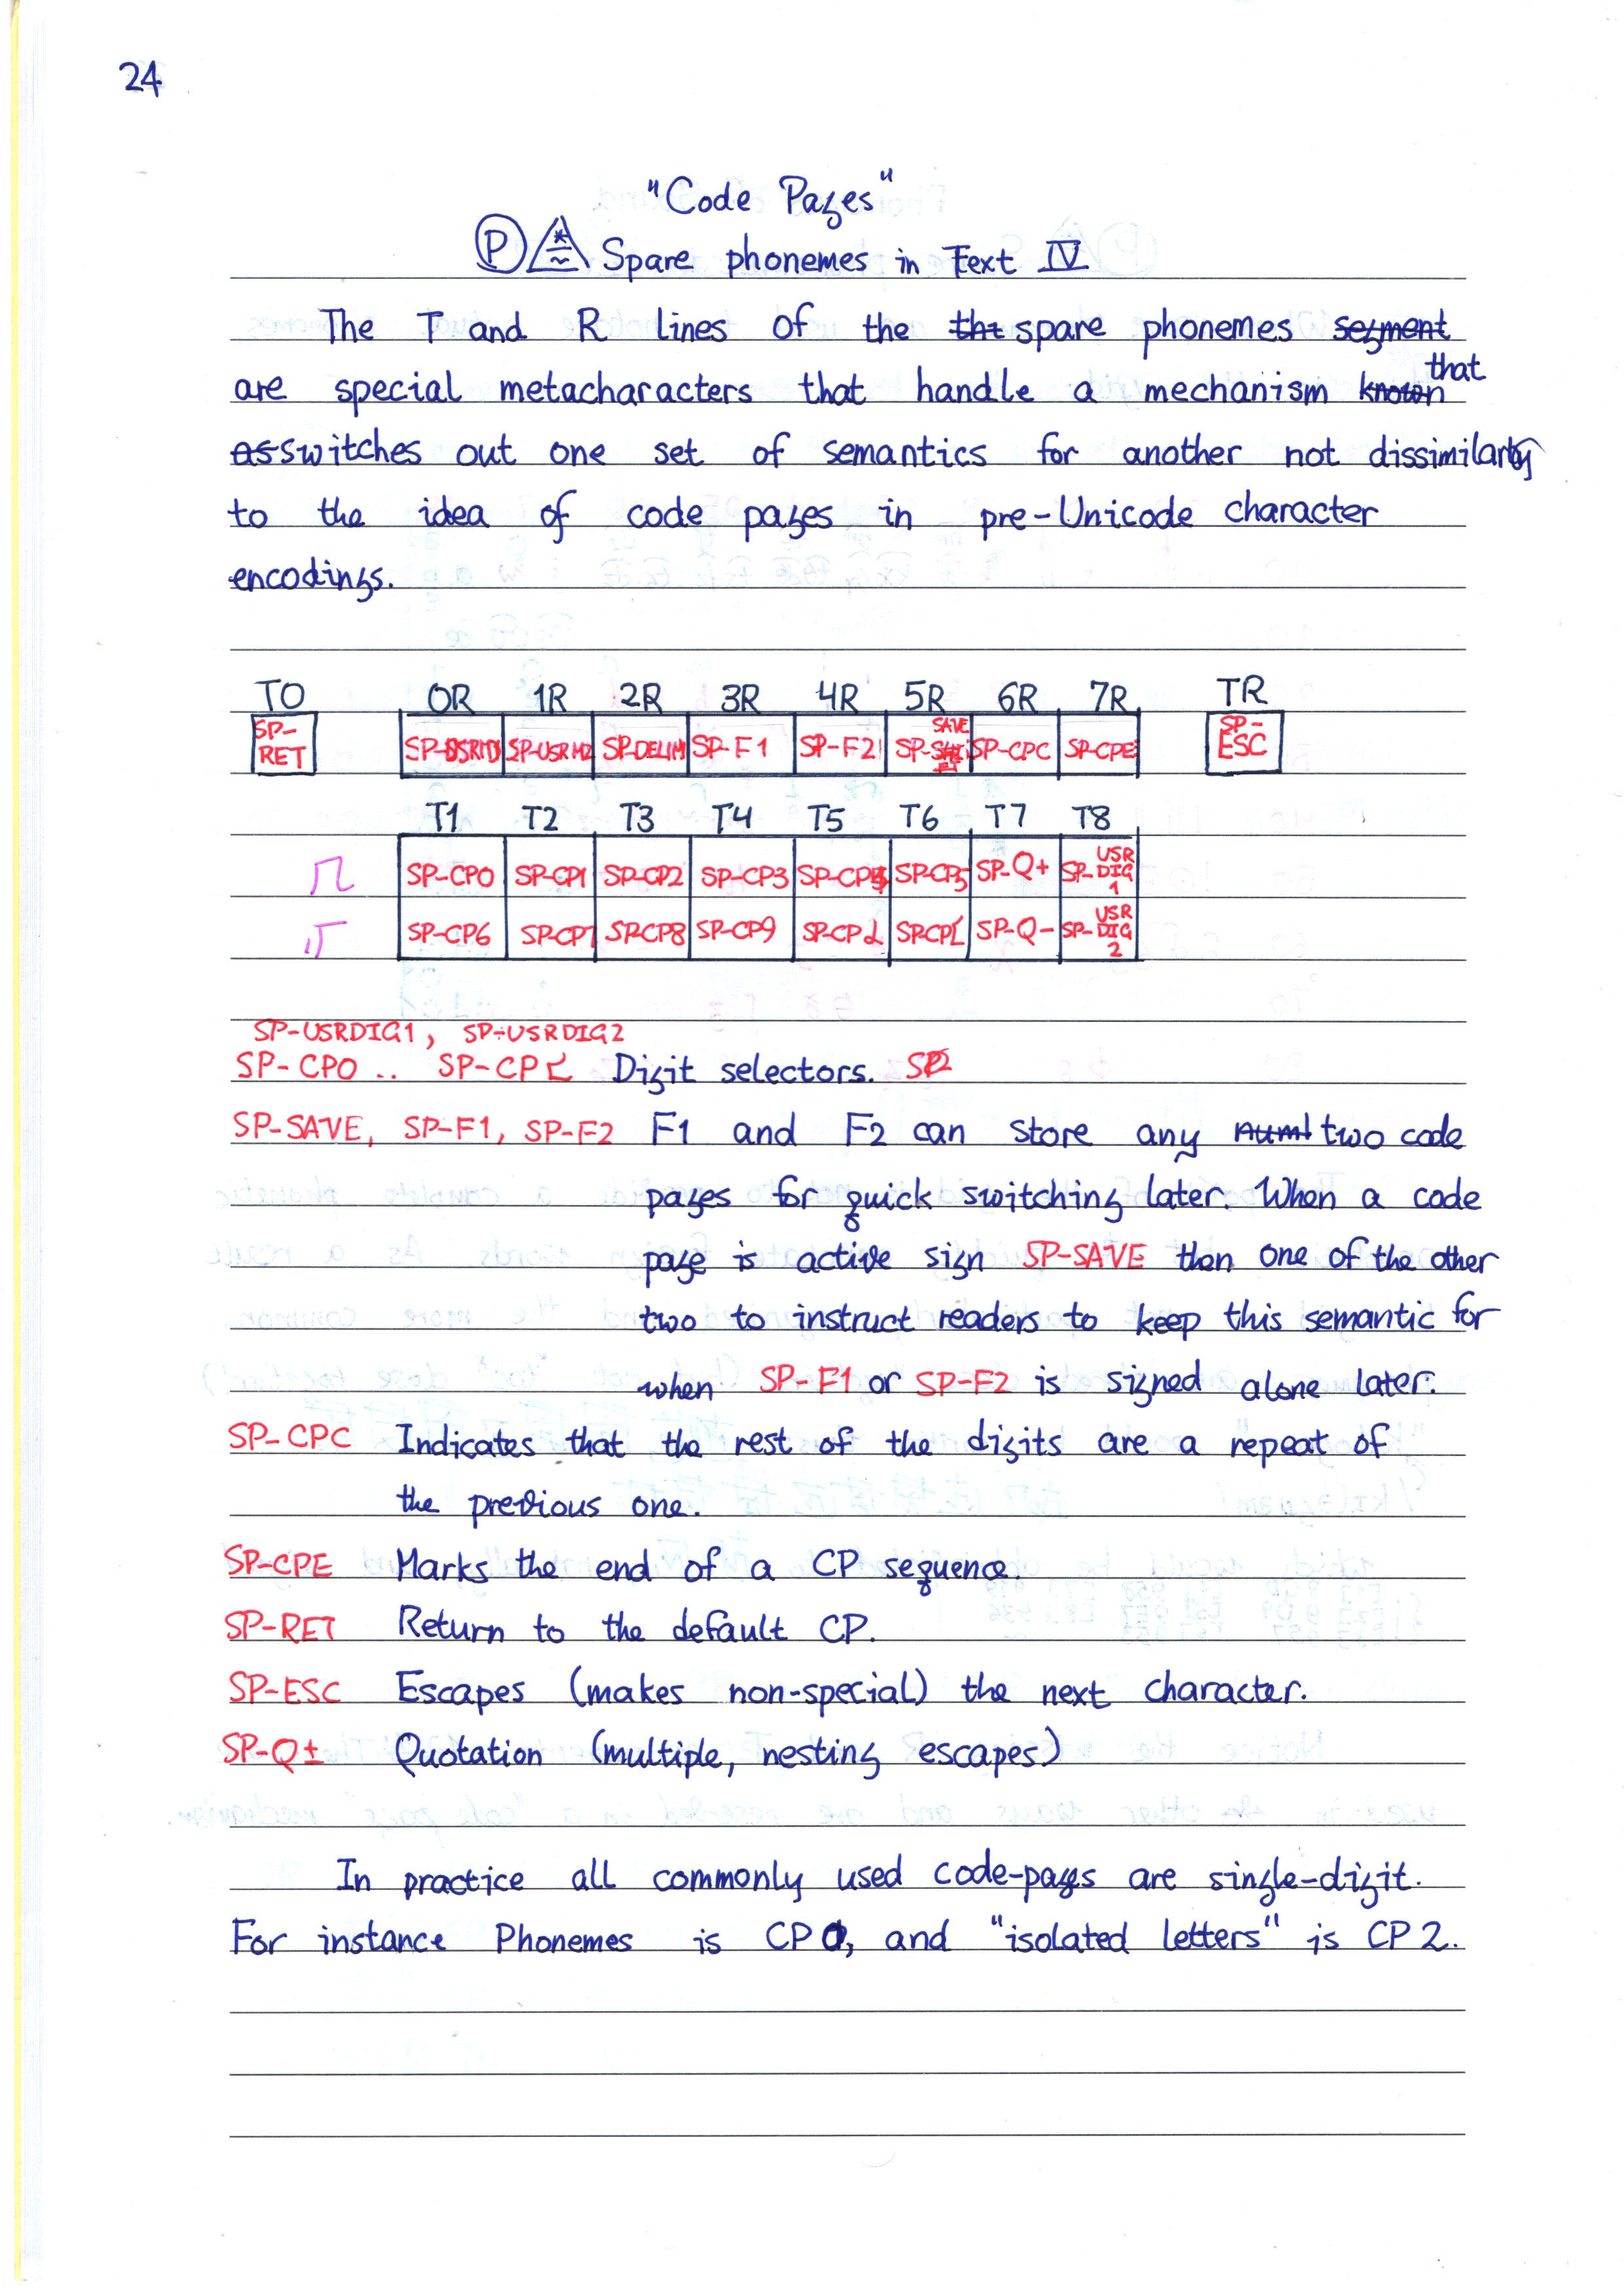 24
"Code Pages"
P Spare phonemes in Text IV
The T and R lines of the the spare phonemes segment
are special metacharacters that handle a mechanism known that
as switches out one set of semantics for another not dissimilarly
to the idea of code pages in pre-Unicode character
encodings.
T0 0R 1R 2R 3R 4R 5R 6R 7R TR
SP-RET SP-USRM1 SP-USRM2 SP-DELIM SP-F1 SP-F2 SP-SAVE SP-CPC SP-CPE SP-ESC
T1 T2 T3 T4 T5 T6 T7 T8
SP-CP0 SP-CP1 SP-CP2 SP-CP3 SP-CP4 SP-CP5 SP-Q+ SP-USRDIG1
SP-CP6 SP-CP7 SP-CP8 SP-CP9 SP-Q- SP-USRDIG2
SP-USRDIG1, SP-USRDIG2
SP-CP0 .. SP-CP Digit selectors.
SP-SAVE, SP-F1, SP-F2 F1 and F2 can store any two code
pages for quick switching later. When a code
page is active sign SP-SAVE then one of the other
two to instruct readers to keep this semantic for
when SP-F1 or SP-F2 is signed alone later.
SP-CPC Indicates that the rest of the digits are a repeat of
the previous one.
SP-CPE Marks the end of a CP sequence.
SP-RET Return to the default CP.
SP-ESC Escapes (makes non-special) the next character.
SP-Q± Quotation (multiple, nesting escapes)
In practice all commonly used code-pages are single-digit.
For instance Phonemes is CP 0, and "isolated letters" is CP 2.